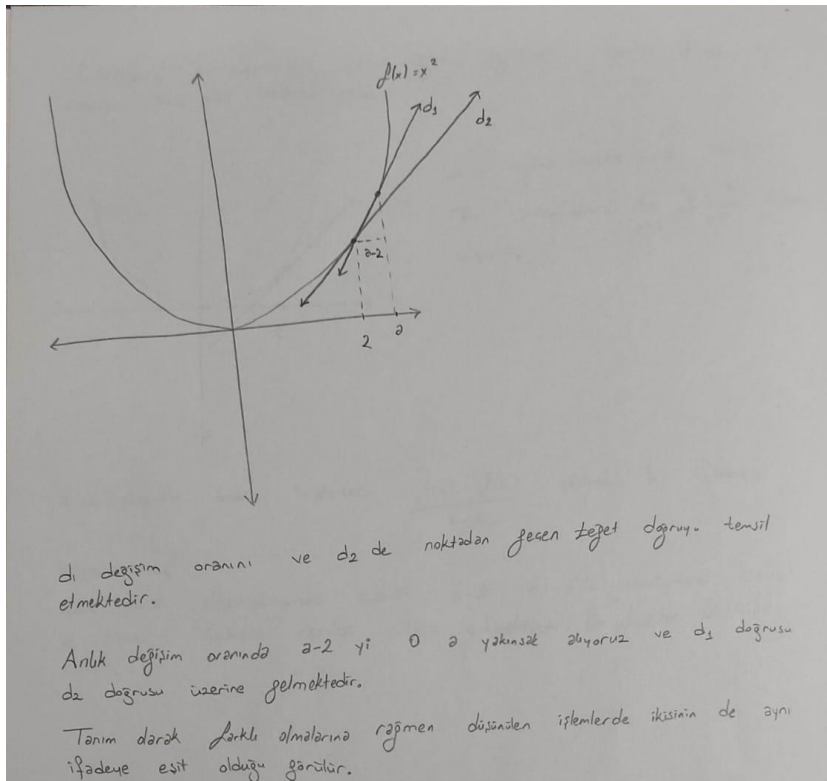 f(x) = x²
d₁
d₂
a-2
2
a
d₁ değişim oranını ve d₂ de noktadan geçen teğet doğruyu temsil
etmektedir.
Anlık değişim oranında a-2 yi 0 a yakınsak alıyoruz ve d₁ doğrusu
d₂ doğrusu üzerine gelmektedir.
Tanım olarak farklı olmalarına rağmen düşünülen işlemlerde ikisinin de aynı
ifadeye eşit olduğu görülür.